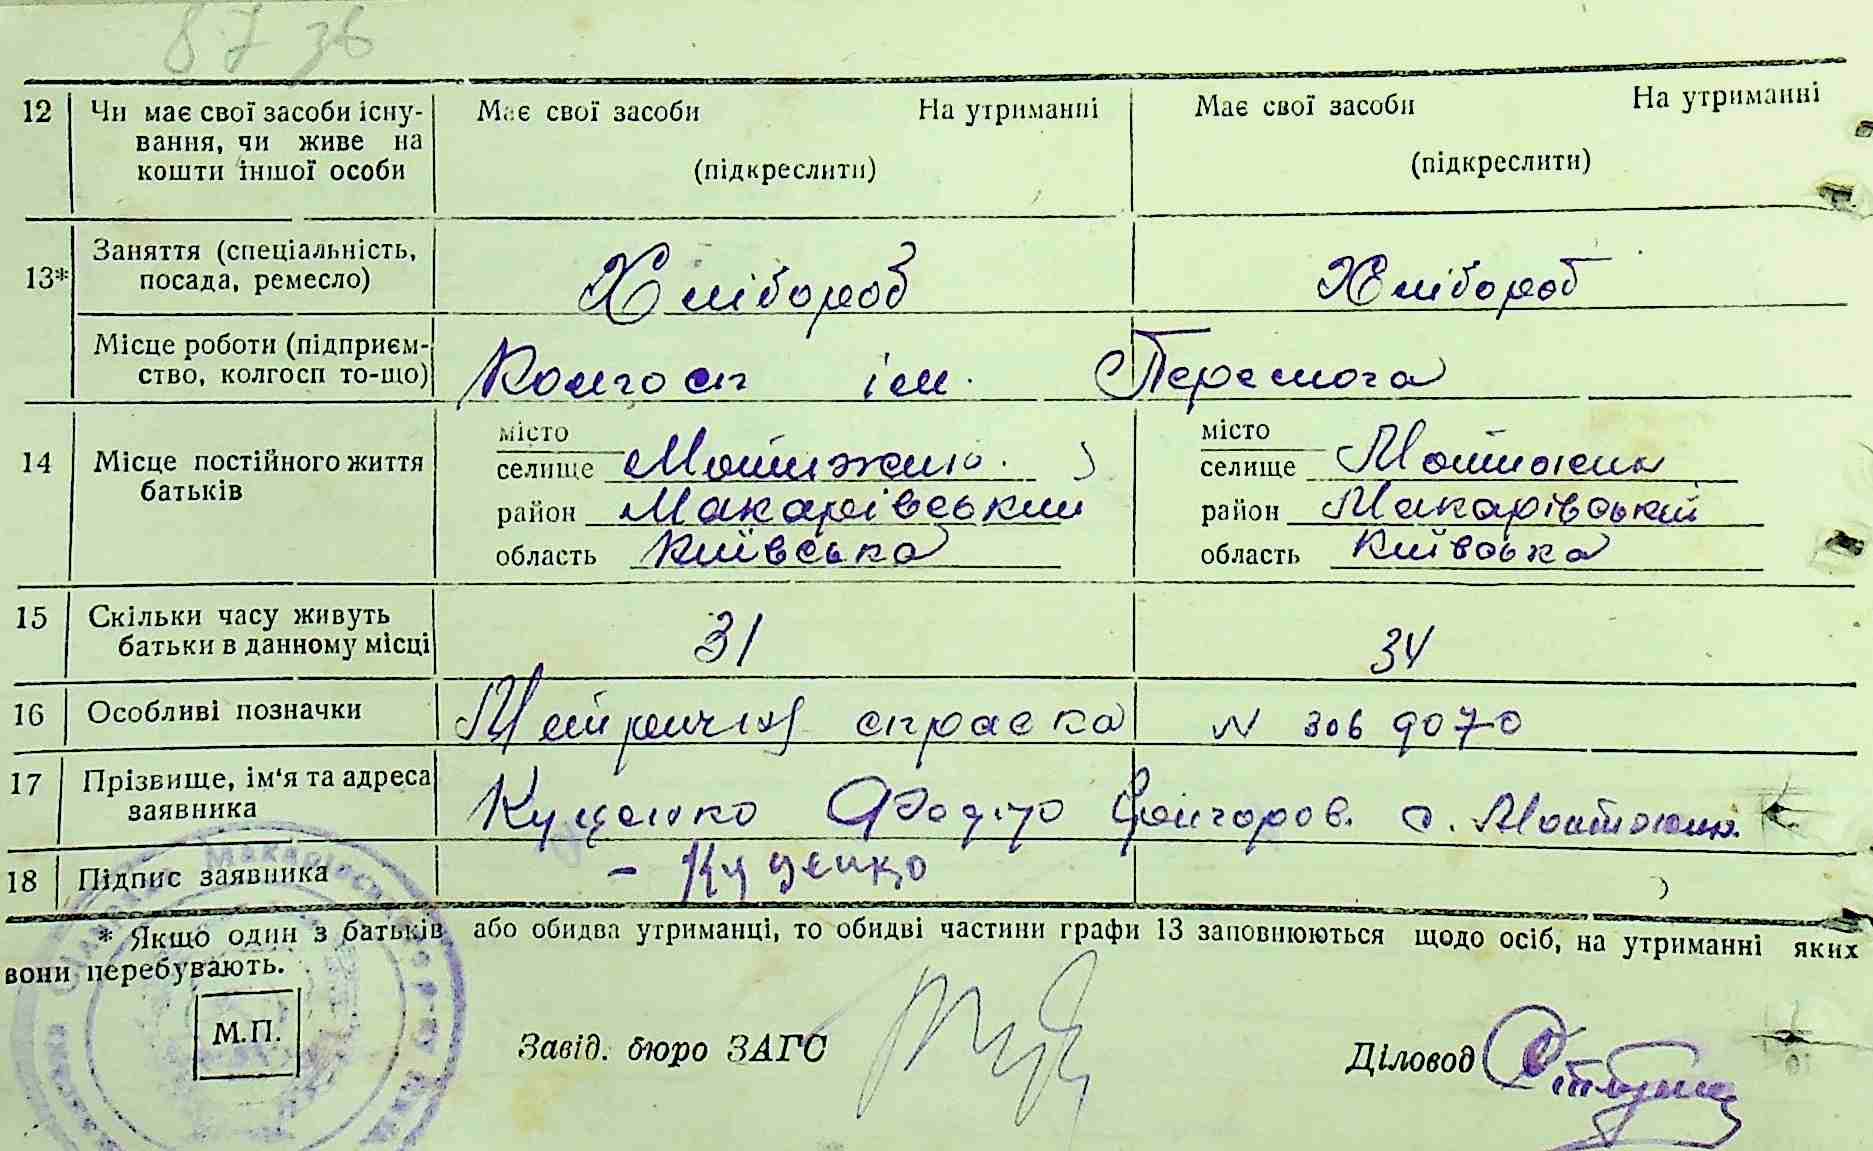 87 зв
12 Чи має свої засоби існу- Має свої засоби На утриманні Має свої засоби На утриманні
вання, чи живе на
кошти іншої особи (підкреслити) (підкреслити)
13* Заняття (спеціальність,
посада, ремесло) Хлібороб Хлібороб
Місце роботи (підприєм-
ство, колгосп то-що) Колгосп ім. Перемога
14 Місце постійного життя
батьків
місто
селище Мотижин місто
селище Мотижин
район Макарівський район Макарівський
область Київська область Київська
15 Скільки часу живуть
батьки в данному місці 31 34
16 Особливі позначки Метрична справка N 306 9070
17 Прізвище, ім'я та адреса
заявника Куценко Федір Григоров. с. Мотижин
18 Підпис заявника - Куценко
* Якщо один з батьків або обидва утриманці, то обидві частини графи 13 заповнюються щодо осіб, на утриманні яких
вони перебувають.
М.П.
Завід. бюро ЗАГС Діловод